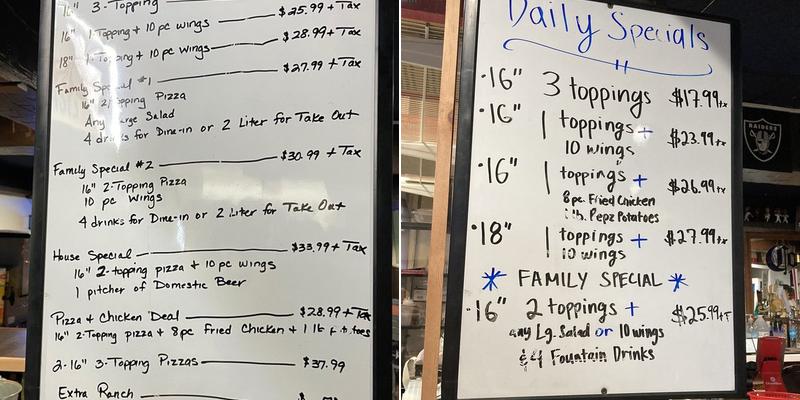 16" 3-Topping
$25.99 + Tax
16" 1-Topping + 10 pc wings $28.99 + Tax
18" 1-Topping + 10 pc Wings $27.99 + Tax
Family Special #1
16" 2-Topping Pizza
Any Large Salad
4 drinks for Dine-in or 2 Liter for Take Out
Family Special #2 $30.99 + Tax
16" 2-Topping Pizza
10 pc Wings
4 drinks for Dine-in or 2 Liter for Take Out
House Special $33.99 + Tax
16" 2-topping pizza + 10 pc wings
1 pitcher of Domestic Beer
Pizza & Chicken Deal $28.99 + Tax
16" 2-Topping pizza + 8pc Fried Chicken + 1 lb
2-16" 3-Topping Pizzas $37.99
Extra Ranch
Daily Specials
16" 3 toppings $17.99+x
16" 1 toppings + $23.99+x
10 wings
16" 1 toppings + $26.99+x
8pc. Fried Chicken
lb. Pepz Potatoes
18" 1 toppings + $27.99+x
10 wings
* FAMILY SPECIAL *
16" 2 toppings + $25.99+T
any Lg. Salad or 10 wings
& 4 Fountain Drinks
RAIDERS